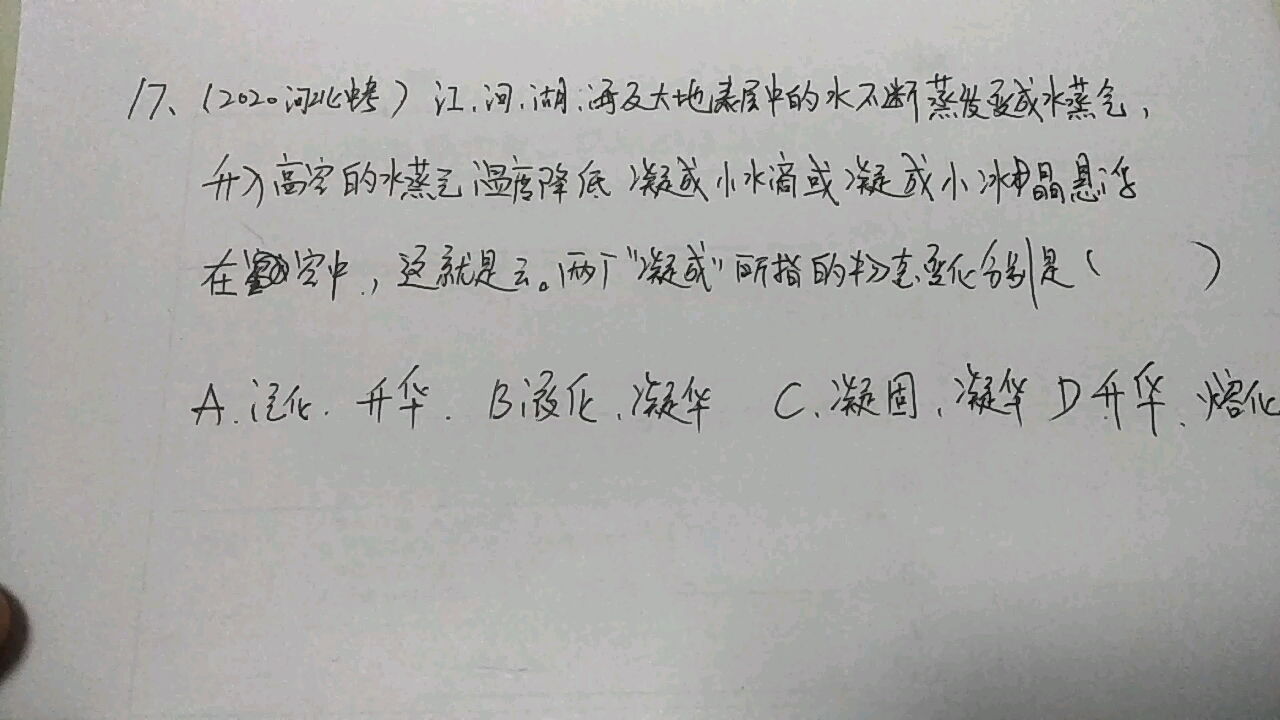 17、(2020河北中考) 江、河、湖、海及大地表层中的水不断蒸发变成水蒸气,
升入高空的水蒸气温度降低凝成小水滴或凝成小冰晶悬浮
在空中,这就是云。两个"凝成"所指的物态变化分别是( )
A.汽化、升华. B液化、凝华 C.凝固、凝华 D升华、熔化